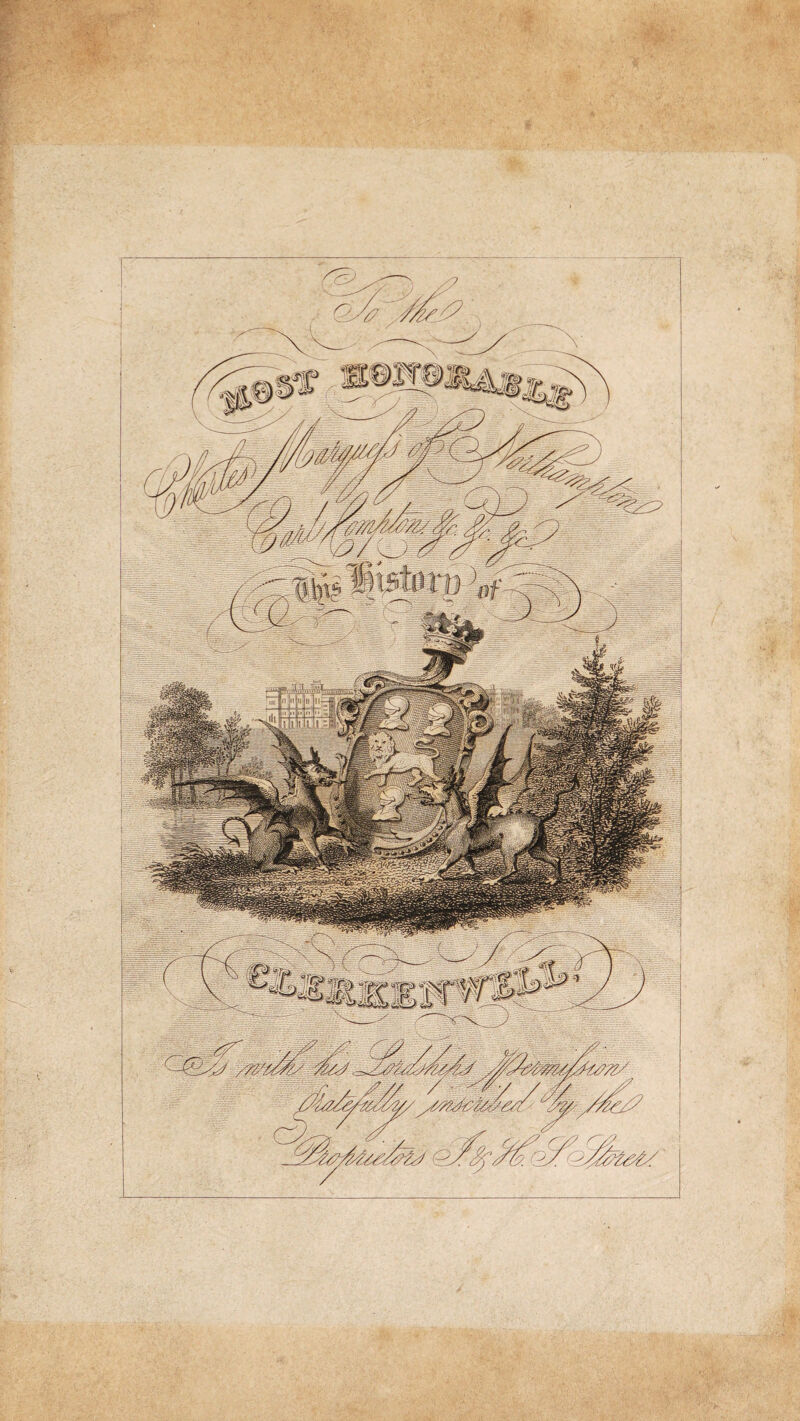 To the
MOST HONORABLE
Charles Marqueſs of Northampton
Earl Compton, &c. &c. &c.
This History of
CLERKENWELL,
Is with his Lordships Permiſsion
Gratefully inscribed by the
Proprietors J. & H. S. Storer.